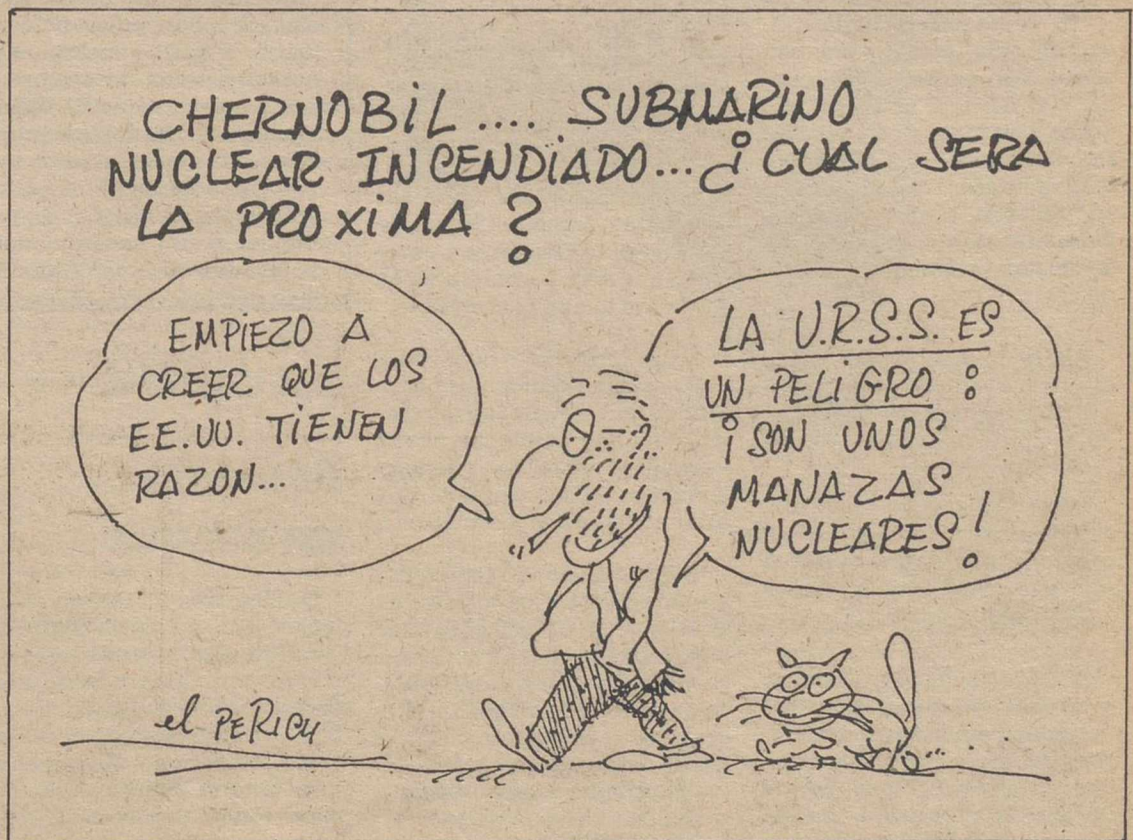 CHERNOBiL .... SUBMARiNO
NUCLEAR INCENDiADO... ¿ CUAL SERA
LA PROXiMA ?
EMPiEZO A
CREER QUE LOS
EE.UU. TiENEN
RAZON...
LA U.R.S.S. ES
UN PELiGRO :
¡ SON UNOS
MANAZAS
NUCLEARES !
el PERiCH